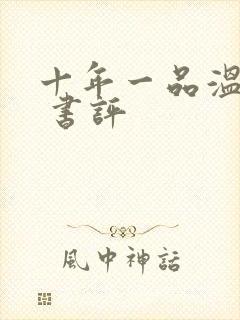 十年一品温
書評
風中神話